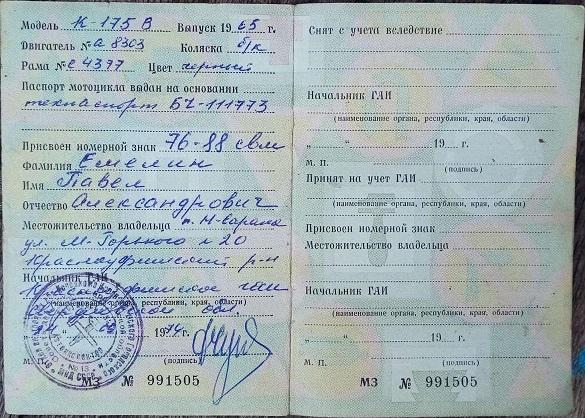 Модель К-175 В Выпуск 1965 г.
Двигатель № а 8303 Коляска б/к
Рама № с 4397 Цвет черный
Паспорт мотоцикла выдан на основании
техпаспорт БЧ-111773
Присвоен номерной знак 76-88 свм
Фамилия Емелин
Имя Павел
Отчество Александрович
Местожительство владельца п. Н-Сарана
ул. М-Горького н 20
Красноуфимский р-н
Начальник ГАИ
Красноуфимское ГАИ
(наименование органа, республики, края, области)
Свердловской обл.
1974 г.
(подпись)
МЗ № 991505
Снят с учета вследствие
Начальник ГАИ
(наименование органа, республики, края, области)
"" 19 г.
М. П. (подпись)
Принят на учет ГАИ
(наименование органа, республики, края, области)
Присвоен номерной знак
Местожительство владельца
Начальник ГАИ
(наименование органа, республики, края, области)
"" 19 г.
М. П. (подпись)
МЗ № 991505